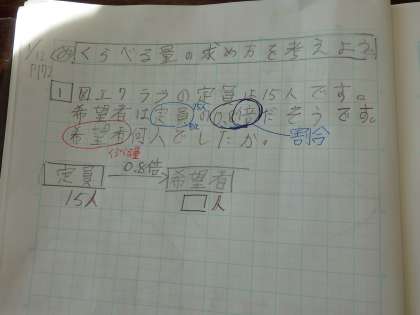 1/12
P172
め くらべる量の求め方を考えよう
1 図工クラブの定員は15人です。
希望者は定員の0.8倍だそうです。
希望者何人でしたか。
割合
くらべる量
0.8倍
定員 希望者
15人 □人